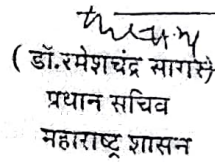 ( डॉ.रमेशचंद्र सागरे)
प्रधान सचिव
महाराष्ट्र शासन